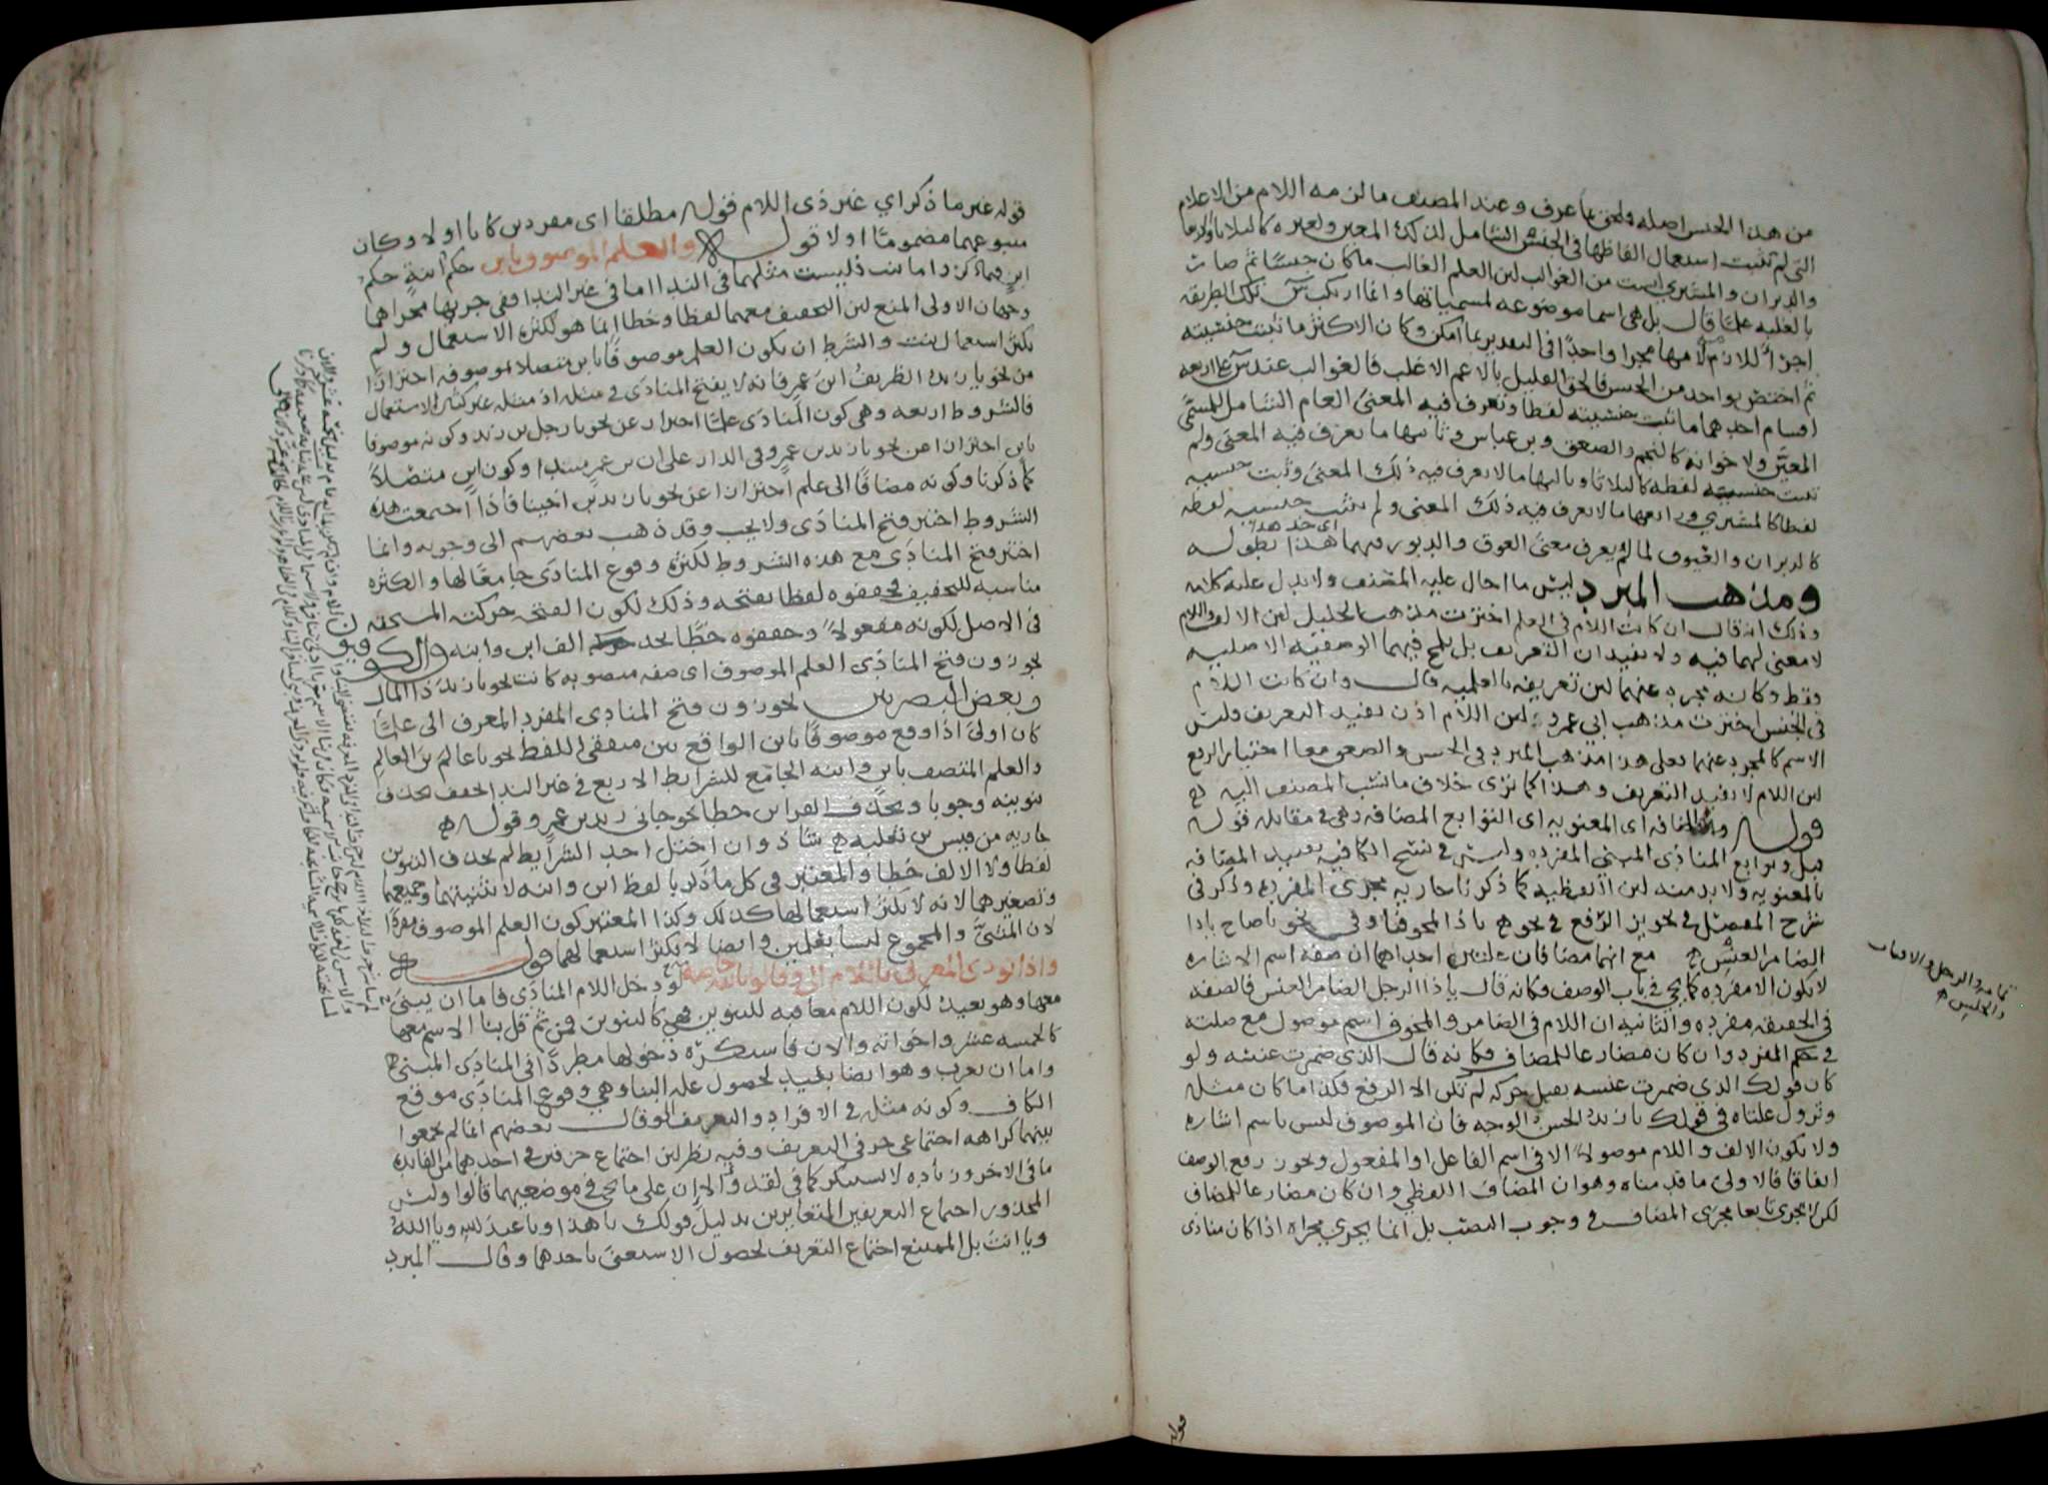 من هذا الجنس اصله ولحن ما عرف وعند المصنف ما لزمه اللام من الاعلام
التي لم تثبت استعمال الفاظها في الجنس الشامل لذلك المعين ولغيره كالثلاثا والاربعا
والدبران والمشتري ليست من الغوالب لان العلم الغالب ما كان جنسا ثم صار
بالغلبه علما قال بل هي اسما موضوعه لمسمياتها وانما ارتكب س تلك الطريقه
اجرا للازم لامها مجرا واحدا في التقدير بما امكن وكان الاكثر ما ثبت جنسيته
ثم اختص بواحد من الجنس فالحق القليل بالاعم الاغلب فالغوالب عند س على اربعه
اقسام احدهما ما ثبت جنسيته لفظا وتعرف فيه المعنى العام الشامل للمسمى
المعين ولاخوانه كالنجم والصعق وبن عباس وثانيها ما تعرف فيه المعنى ولم
تثبت جنسيه لفظه كالثلاثا وثالثها ما لا يعرف فيه ذلك المعنى وثبت جنسيه
لفظا كالمشتري ورابعها ما لا يعرف فيه ذلك المعنى ولم يثبت جنسيه لفظه
كالدبران والعيوق لما لم يعرف معنى العوق والدبور فيهما هذا بطوله
ومذهب المبرد ليس ما احال عليه المصنف ولا يدل عليه كلامه
وذلك انه قال ان كانت اللام في العلم اخترت مذهب الخليل لان الالف واللام
لا معنى لهما فيه ولا يفيدان التعريف بل يلمح فيهما الوصفيه الاصليه
فقط وكانه مجرد عنهما لان تعريفه بالعلميه قال وان كانت اللام
في الجنس اخترت مذهب ابي عمرو لان اللام اذن تفيد التعريف وليس
الاسم كالمجرد عنهما فعلى هذا مذهب المبرد في الحسن والصعق معا اختيار الرفع
لان اللام لا تفيد التعريف وهذا كما ترى خلاف ما نسب المصنف اليه
قوله والمضافه اى المعنويه اى التوابع المضافه وهي في مقابله قوله
قبل وتوابع المنادى المبني المفرده وليس في نسخ الكافيه تقييد المضافه
بالمعنويه ولا بد منه لان اللفظيه كما ذكرنا جاريه مجرى المفرده وذكر في
شرح المفصل في تجويز الرفع في نحو يا ذا المخوفنا وفي نحو يا صاح يا ذا
الضامر العنس مع انهما مضافان علتين احداهما ان صفه اسم الاشاره
لا تكون الا مفرده كما يجي في باب الوصف وكانه قال يا ذا الرجل الضامر العنس فالصفه
في الحقيقه مفرده والثانيه ان اللام في الضامر والمخوف اسم موصول مع صلته
في حكم المفرد وان كان مضارعا للمضاف فكانه قال الذى ضمرت عنسه ولو
كان قولك الذي ضمرت عنسه يقبل حركه لم تكن الا الرفع فكذا ما كان مثله
وتزول علتاه في قولك يا زيد الحسن الوجه فان الموصوف ليس باسم اشاره
ولا يكون الالف واللام موصولا الا في اسم الفاعل او المفعول وتجوز رفع الوصف
اتفاقا فالاولى ما قدمناه وهو ان المضاف اللفظي وان كان مضارعا للمضاف
لكن لا يجرى تابعا مجرى المضاف في وجوب النصب بل انما يجري مجراه اذا كان منادى
قوله
قوله غير ما ذكر اي غير ذى اللام قوله مطلقا اى مفردين كانا اولا وكان
متبوعهما مضموما اولا قوله والعلم الموصوف بابن حكم ابنة حكم
ابن فيما ذكر واما بنت فليست مثلهما في الندا اما في غير الندا ففي جريها مجراهما
وجهان الاولى المنع لان التخفيف معهما لفظا وخطا انما هو لكثره الاستعمال ولم
يكثر استعمال بنت والشرط ان يكون العلم موصوفا بابن متصلا بموصوفه احترازا
من نحو يا زيد الظريف ابن عمرو فانه لا يفتح المنادى في مثله اذ مثله غير كثير الاستعمال
فالشروط اربعه وهي كون المنادى علما احتراز عن نحو يا رجل بن زيد وكونه موصوفا
بابن احترازا عن نحو يا زيد بن عمرو في الدار على ان بن عمرو مبتدا وكون ابن متصلا
كما ذكرنا وكونه مضافا الى علم احترازا عن نحو يا زيد بن اخينا فاذا اجتمعت هذه
الشروط اختير فتح المنادى ولا يجب وقد ذهب بعضهم الى وجوبه وانما
اختير فتح المنادى مع هذه الشروط لكثره وقوع المنادى جامعا لها والكثره
مناسبه للتخفيف فخففوه لفظا بفتحه وذلك لكون الفتحه حركته المستحقه
في الاصل لكونه مفعولا وخففوه خطا بحذف الف ابن وابنه والكوفيون
يجوزون فتح المنادى العلم الموصوف اى صفه منصوبه كانت نحو يا زيد ذا المال
وبعض البصريين يجوزون فتح المنادى المفرد المعرف الى علما
كان اولى اذا وقع موصوفا بابن الواقع بين متفقي اللفظ نحو يا عالم بن العالم
والعلم المتصف بابن وابنه الجامع للشرايط الاربع في غير الندا يخفف بحذف
تنوينه وجوبا وبحذف الف ابن خطا نحو جاني زيد بن عمرو وقوله
جاريه من قيس بن ثعلبه شاذ وان اختل احد الشرايط لم يحذف التنوين
لفظا ولا الالف خطا والمعتبر في كل ما ذكرنا لفظ ابن وابنه لا تثنيتهما وجمعهما
وتصغيرهما لانه لا يكثر استعمالها كذلك وكذا المعتبر كون العلم الموصوف مفردا
لان المثنى والمجموع ليسا بعلمين وايضا لا يكثر استعمالهما قوله
واذا نودى المعرف باللام الى وقالوا يالله خاصه لو دخل اللام المنادى فاما ان يبنى
معها وهو بعيد لكون اللام معاقبه للتنوين فهي كالتنوين فمن ثم قل بنا الاسم معها
كالخمسه عشر واخواته والان فاستكره دخولها مطردا في المنادى المبني
واما ان يعرب وهو ايضا بعيد لحصول عله البنا وهي وقوع المنادى موقع
الكاف وكونه مثله في الافراد والتعريف وقال بعضهم انما لم يجمعوا
بينهما كراهه اجتماعي حرفي التعريف وفيه نظر لان اجتماع حرفين في احدهما من الفايده
ما في الاخر وزياده لا يستنكر كما في لقد والا ان على ما يجي في موضعهما قالوا وليس
المحذور اجتماع التعريفين المتغايرين بدليل قولك يا هذا ويا عبد الله ويا الله
ويا انت بل الممتنع اجتماع التعريف لحصول الاستغنى باحدهما وقال المبرد